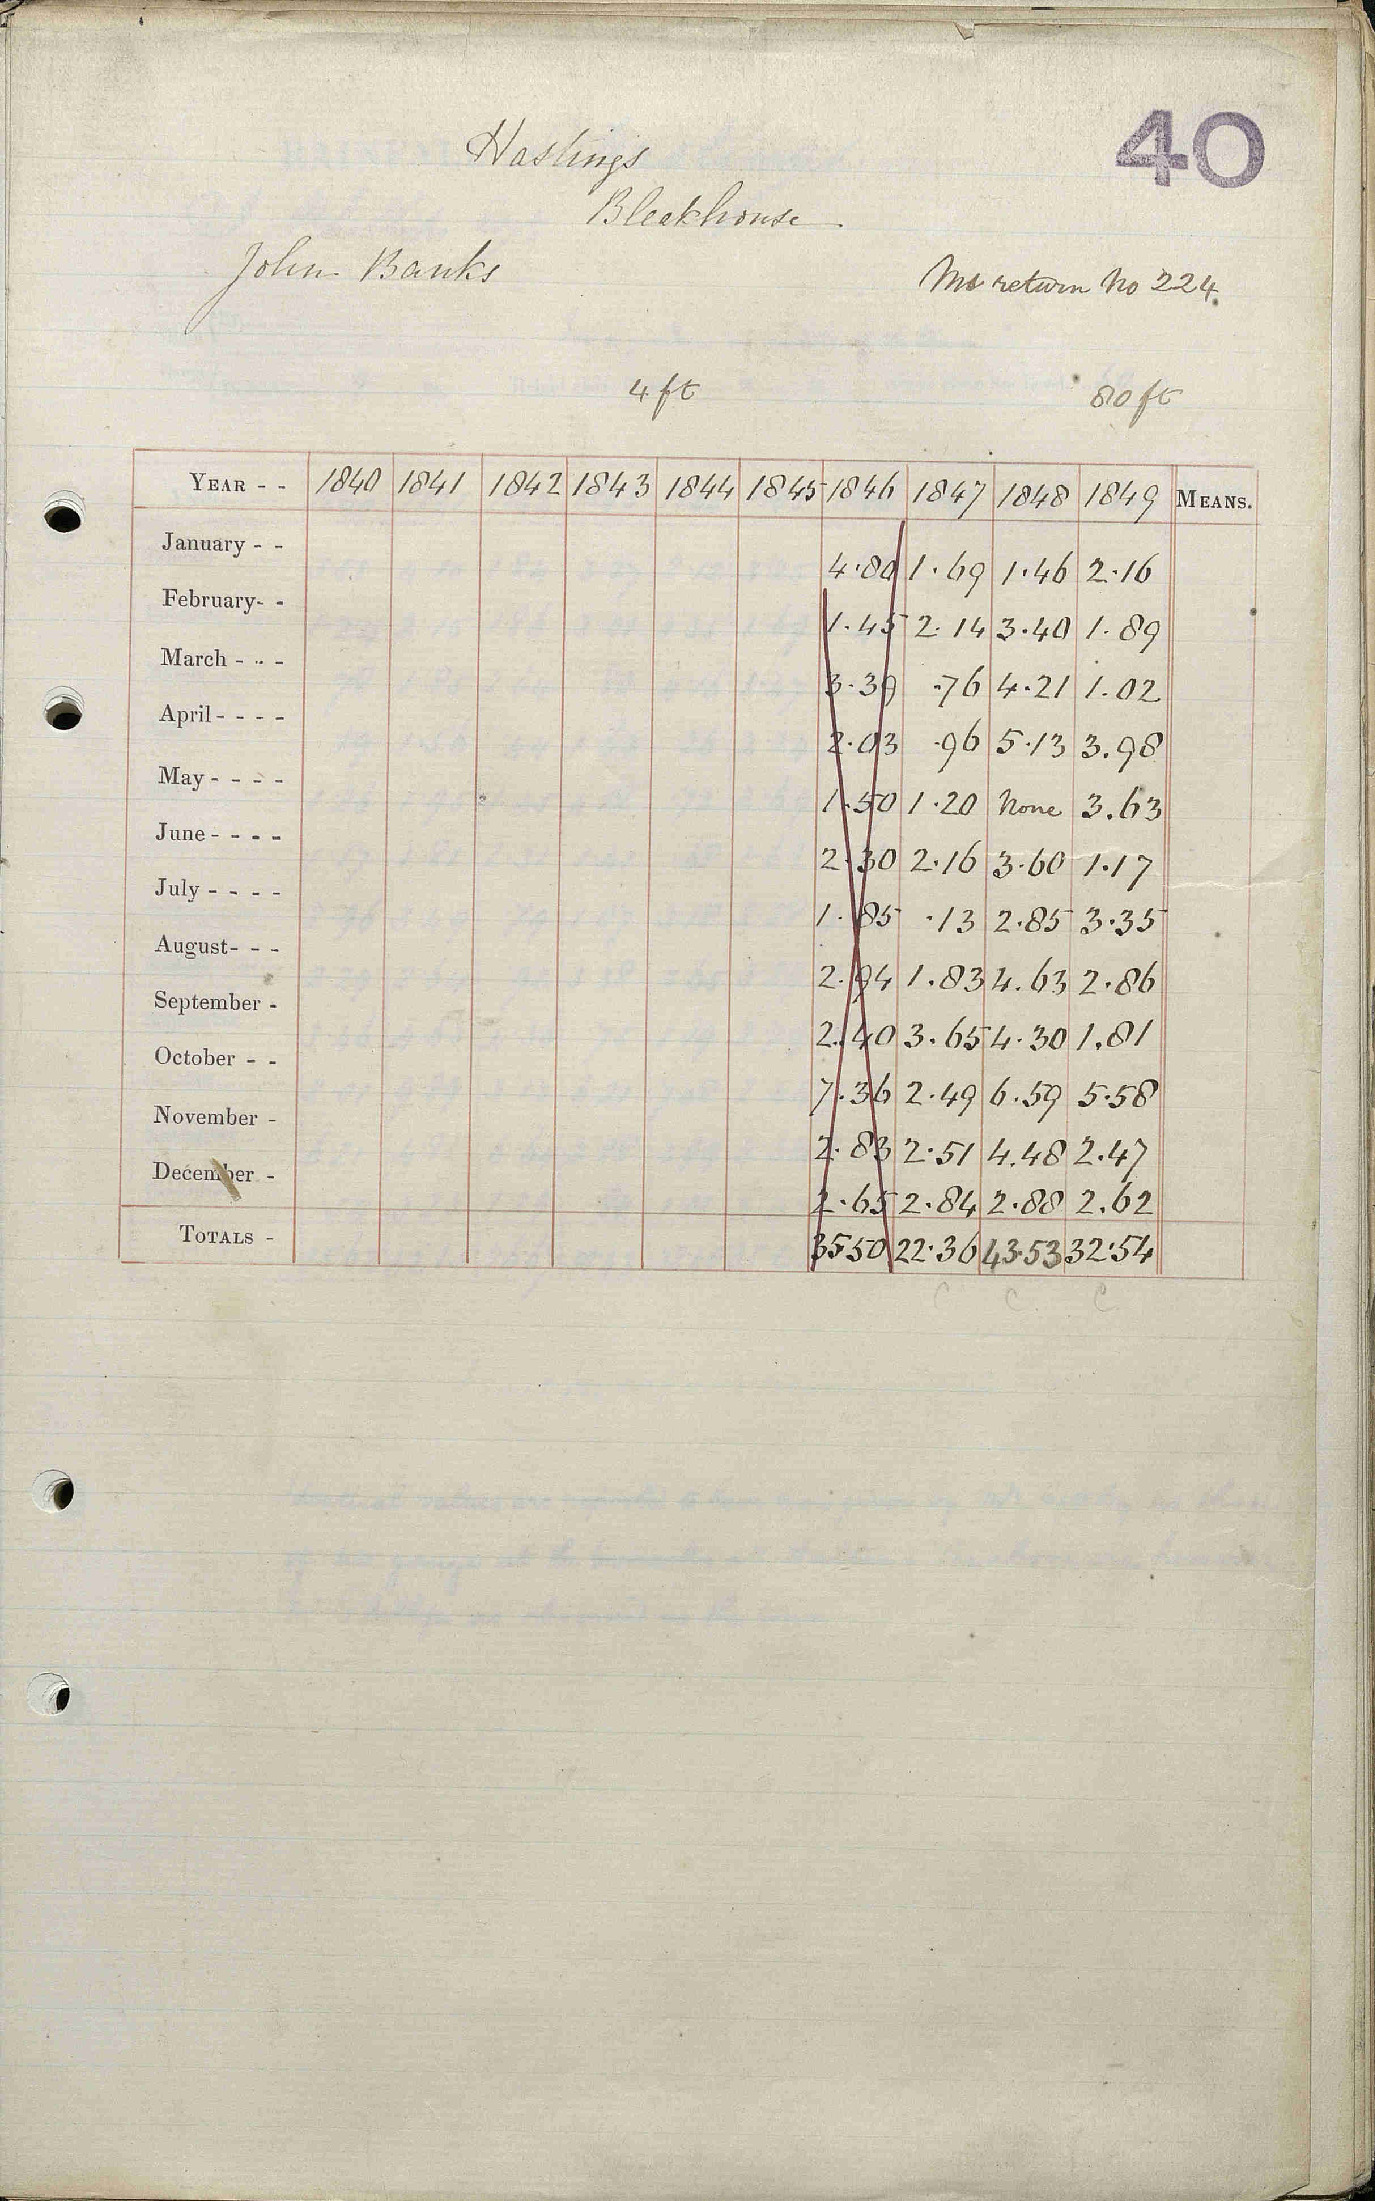 40
Hastings
Bleakhouse
John Banks
return No 224.
4 ft 80 ft
YEAR - - 1840 1841 1842 1843 1844 1845 1846 1847 1848 1849 MEANS.
January - - 4.80 1.69 1.46 2.16
February- - 1.45 2.14 3.40 1.89
March - - - 3.39 .76 4.21 1.02
April - - - - 2.03 .96 5.13 3.98
May - - - - 1.50 1.20 None 3.63
June - - - - 2.30 2.16 3.60 1.17
July - - - - 1.85 .13 2.85 3.35
August- - - 2.94 1.83 4.63 2.86
September - 2.40 3.65 4.30 1.81
October - - 7.36 2.49 6.59 5.58
November - 2.83 2.51 4.48 2.47
December - 2.65 2.84 2.88 2.62
TOTALS - 35.50 22.36 43.53 32.54
C C C